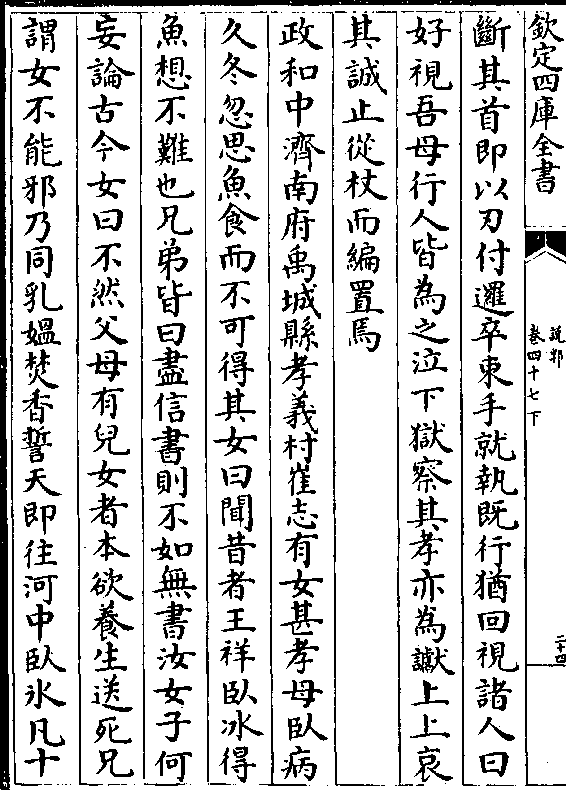 欽定四庫全書
說郛
卷四十七下
二十四
斷其首即以刃付邏卒束手就執既行猶回視諸人曰
好視吾母行人皆為之泣下獄察其孝亦為讞上上哀
其誠止從杖而編置焉
政和中濟南府禹城縣孝義村崔志有女甚孝母臥病
久冬忽思魚食而不可得其女曰聞昔者王祥臥冰得
魚想不難也兄弟皆曰盡信書則不如無書汝女子何
妄論古今女曰不然父母有兒女者本欲養生送死兄
謂女不能邪乃同乳媼焚香誓天即往河中臥氷凡十